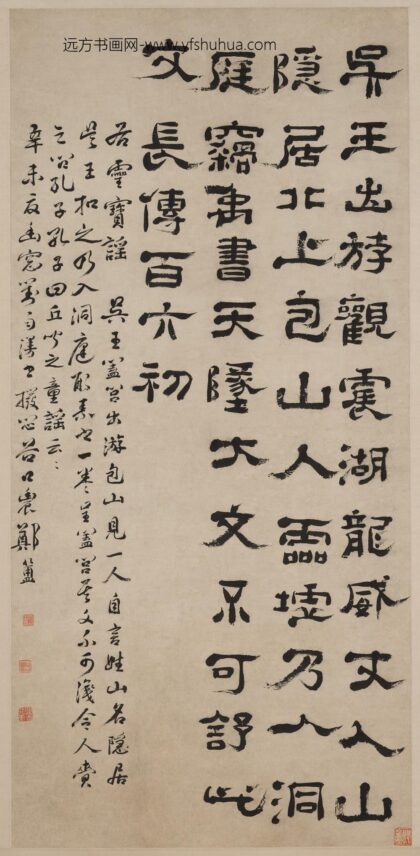 远方书画网-www.yfshuhua.com
吳王出游觀震湖龍威丈人山
隱居北上包山入靈墟乃入洞
庭竊禹書天墜大文不可舒此
文長傳百六初
右靈寶謠 吳王闔閭出游包山見一人自言姓山名隱居
吳王扣之乃入洞庭取素書一卷呈闔閭其文不可識令人賫
之問孔子孔子曰丘聞之童謠云云
辛未夏幽窗對雨漫書撥悶谷口農鄭簠